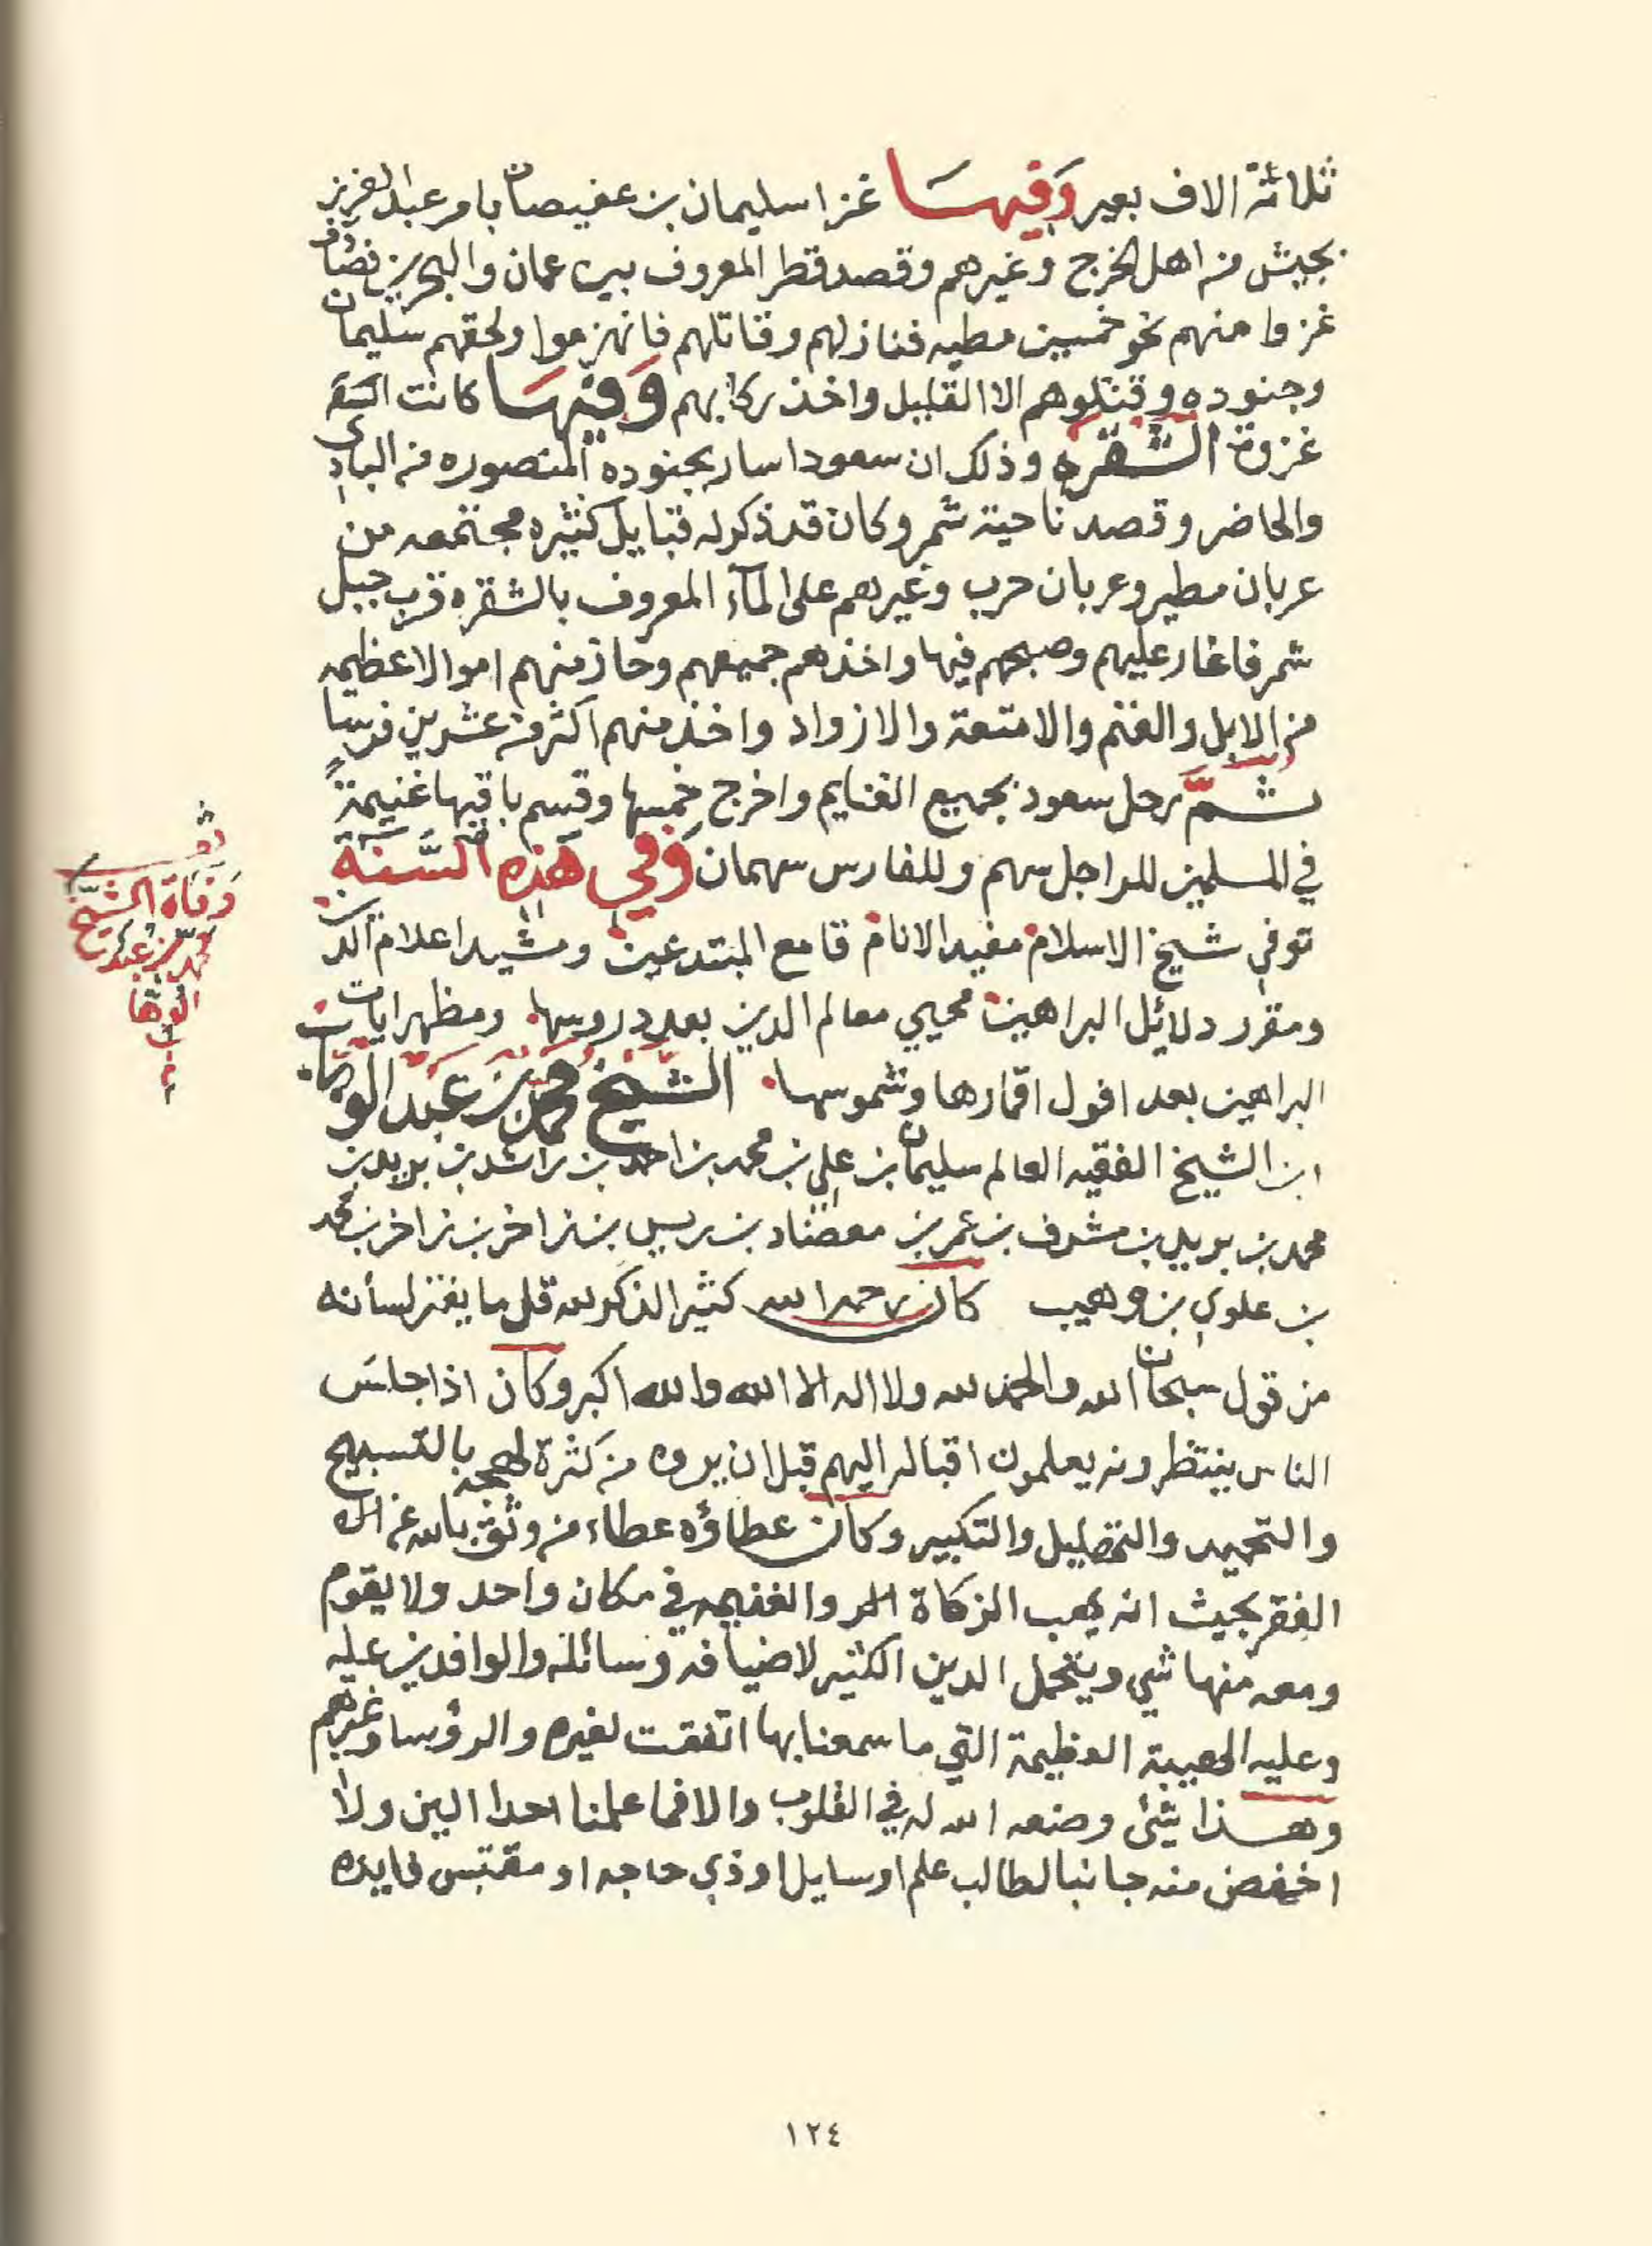 ثلاثة الاف بعير وَفِيهَا غزا سليمان بن عفيصان بامر عبد العزيز
بجيش من اهل الخرج وغيرهم وقصد قطر المعروف بين عمان والبحرين فصادف
غزوا منهم نحو خمسين مطيه فنازلهم وقاتلهم فانهزموا ولحقهم سليمان
وجنوده وقتلوهم الا القليل واخذ ركابهم وَفِيهَا كانت
غزوة الشقره وذلك ان سعودا سار بجنوده المنصوره من البادي
والحاضر وقصد ناحية شمر وكان قد ذكر له قبايل كثيره مجتمعه من
عربان مطير وعربان حرب وغيرهم على المآء المعروف بالشقره قرب جبل
شمر فاغار عليهم وصبحهم فيها واخذهم جميعهم وحاز منهم اموالا عظيمه
من الابل والغنم والامتعة والازواد واخذ منهم اكثر من عشرين فرسا
ثمَّ رحل سعود بجميع الغنايم واخرج خمسها وقسم باقيها غنيمةً
في المسلمين للراجل سهم وللفارس سهمان وَفي هَذِه السَّنَة
توفي شيخ الاسلام مفيد الانام قامع المبتدعين ومشيد اعلام الدين
ومقرر دلائل البراهين محيي معالم الدين بعد دروسها ومظهر ايات
البراهين بعد افول اقمارها وشموسها الشيخ محمد بن عبد الوهاب
ابن الشيخ الفقيه العالم سليمان بن علي بن محمد بن احمد بن راشد بن بريد بن
محمد بن بريد بن مشرف بن عمر بن معضاد بن ريس بن زاخر بن زاخر بن محمد
بن علوي بن وهيب كان رحمه الله كثير الذكر لله قل ما يفتر لسانه
من قول سبحان الله والحمد لله ولا اله الا الله والله اكبر وكان اذا جلسَ
الناس ينتظرونه يعلمون اقباله اليهم قبل ان يروه من كثرة لهجه بالتسبيح
والتحميد والتهليل والتكبير وكان عطاؤه عطاء من وثق بالله عن
الفقر بحيث انه يهب الزكاة والغنيمه في مكان واحد ولا يقوم
ومعه منها شي ويتحمل الدين الكثير لاضيافه وسائله والوافدين عليه
وعليه الهيبة العظيمة التي ما سمعنا بها اتفقت لغيره والرؤسا وغيرهم
وهذا شئ وضعه الله له في القلوب والا فما علمنا احدا الين ولا
اخفض منه جانبا لطالب علم او سايل او ذي حاجه او مقتبس فايده
وفاة الشيخ
محمد بن عبد
الوهاب
١٢٤